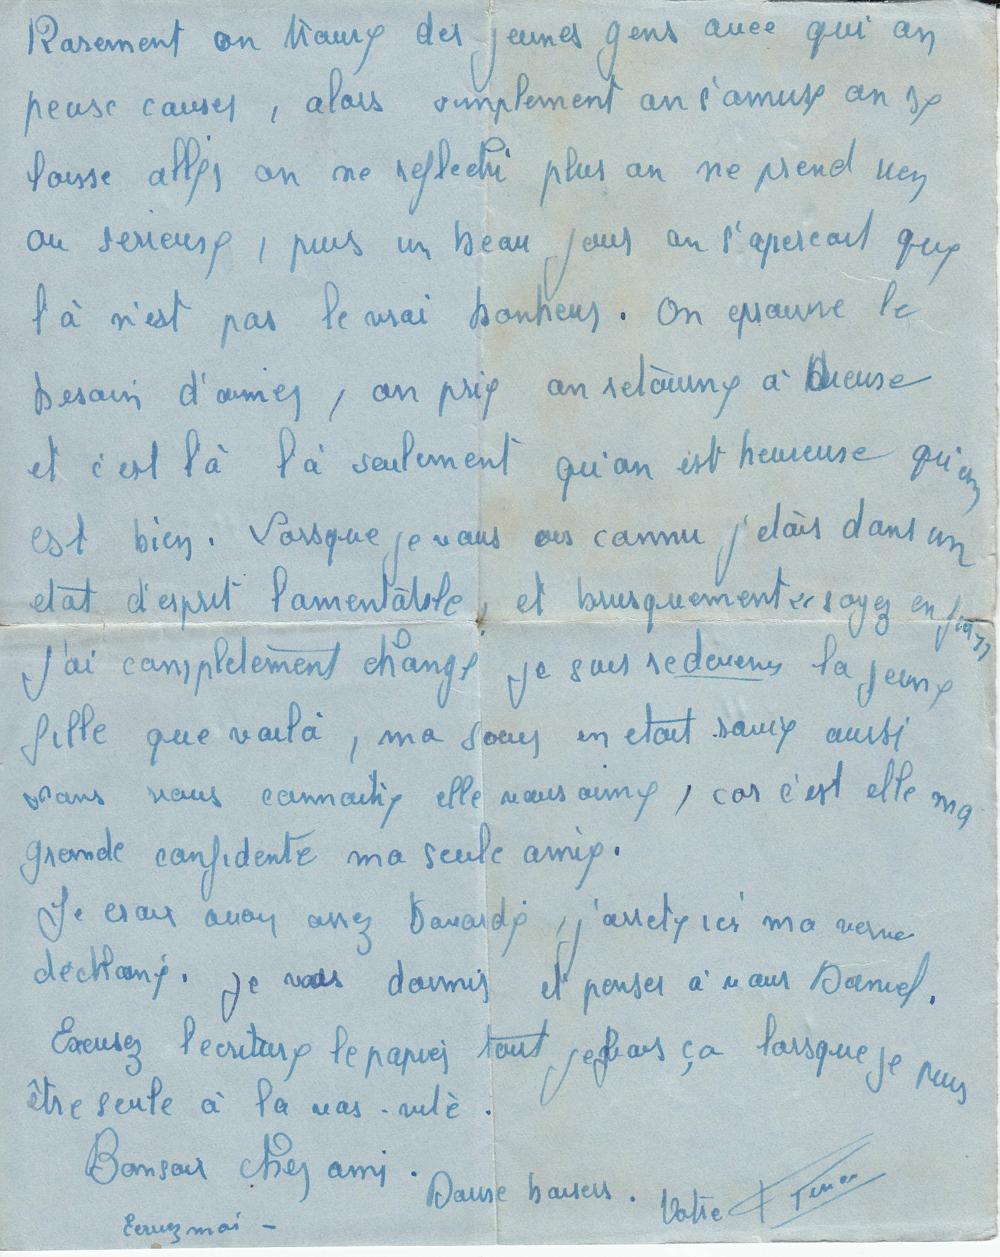 Rarement on trouve des jeunes gens avec qui on
peuse causer, alors simplement on s'amuse on se
laisse aller on ne reflechi plus on ne prend rien
au serieuse, puis un beau jour on s'apercoit que
là n'est pas le vrai bonheur. On eprouve le
besoin d'aimer, on prie on retourne à Dieuse
et c'est là là seulement qu'on est heureuse qu'on
est bien. Lorsque je vous ais connu j'etais dans un
etat d'esprit lamentable, et brusquement soyez en fier
j'ai complètement changé je suis redevenu la jeune
fille que voilà, ma soeur en etait ravie aussi
sans vous connaitre elle vous aime, car c'est elle ma
grande confidente ma seule amie.
Je crois avoir assez bavardé, j'arrete ici ma verve
déchainé. je vais dormir et penser à vous Daniel.
Excusez l'ecriture le papier tout je fais ça lorsque je puis
être seule à la vas-vite.
Bonsoir cher ami.
Douse baisers. Votre
Ecrivez moi -